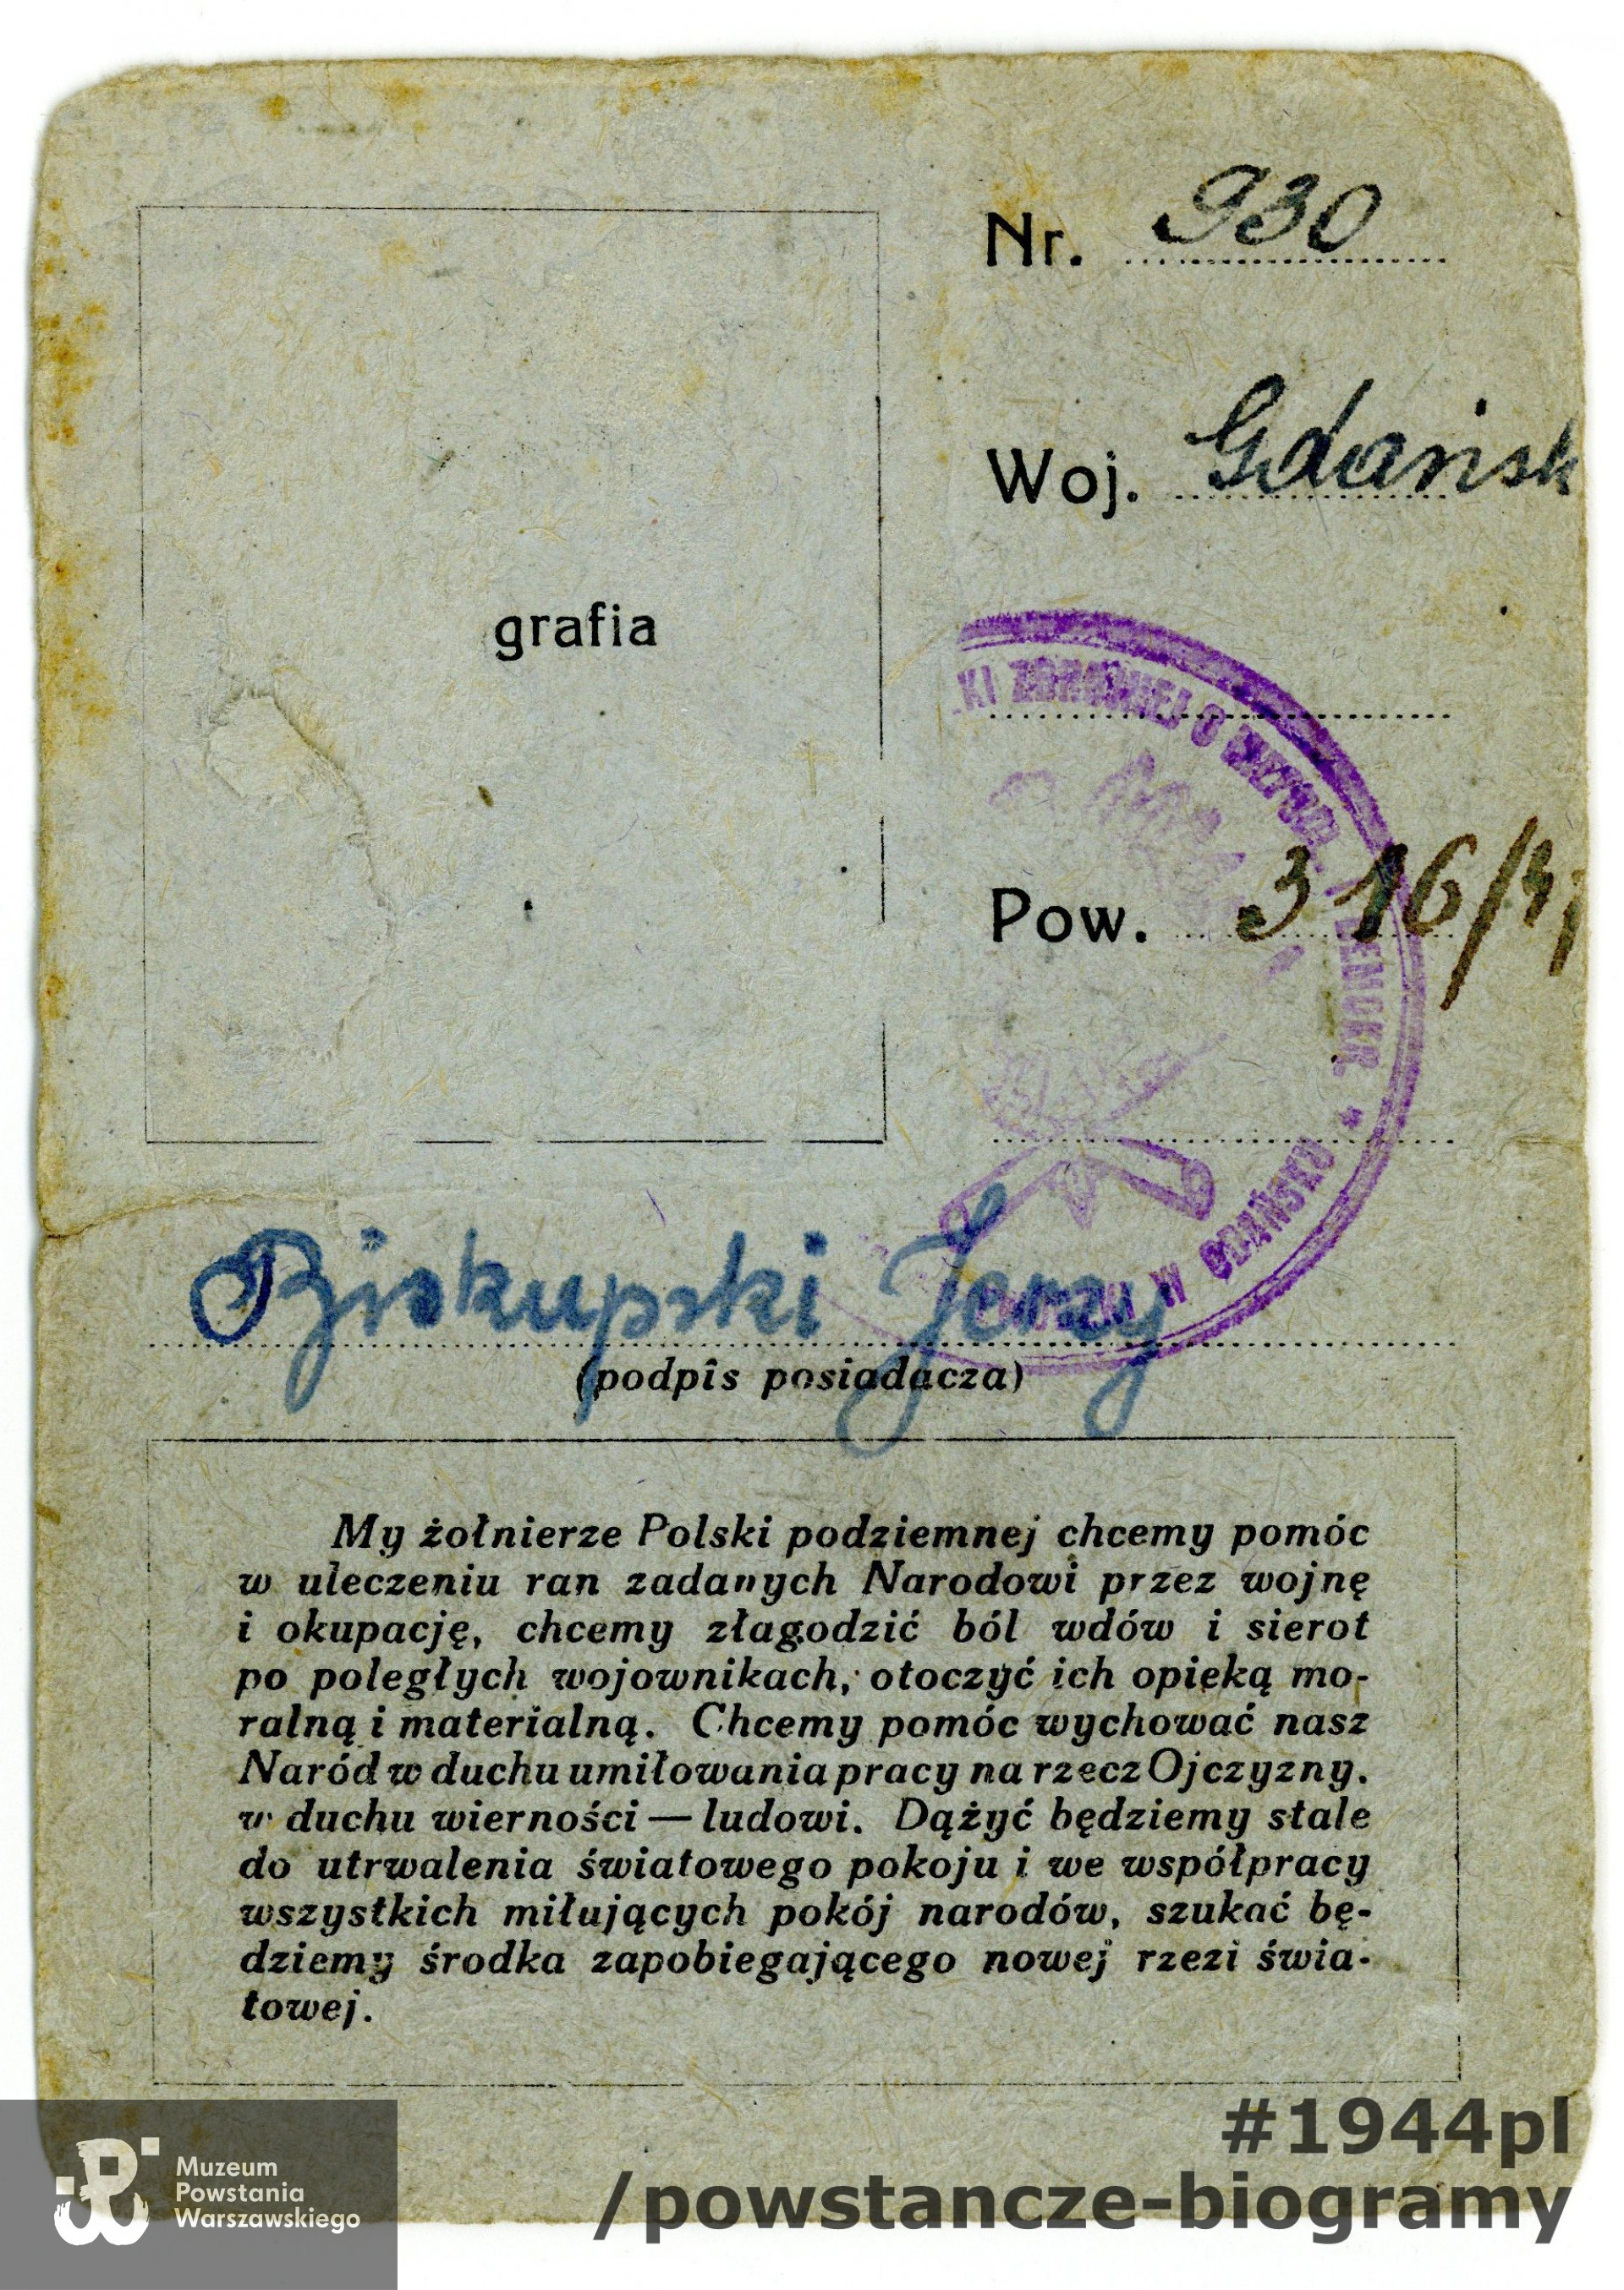 Nr. 930
Woj. Gdańsk
grafia
KI ZBROJNEJ O
DEMOKR. *
W GDAŃSKU
Pow. 316/47
Biskupski Jerzy
(podpis posiadacza)
My żołnierze Polski podziemnej chcemy pomóc
w uleczeniu ran zadanych Narodowi przez wojnę
i okupację, chcemy złagodzić ból wdów i sierot
po poległych wojownikach, otoczyć ich opieką mo-
ralną i materialną. Chcemy pomóc wychować nasz
Naród w duchu umiłowania pracy na rzecz Ojczyzny.
w duchu wierności — ludowi. Dążyć będziemy stale
do utrwalenia światowego pokoju i we współpracy
wszystkich miłujących pokój narodów, szukać bę-
dziemy środka zapobiegającego nowej rzezi świa-
towej.
#1944pl
/powstancze-biogramy
Muzeum
Powstania
Warszawskiego